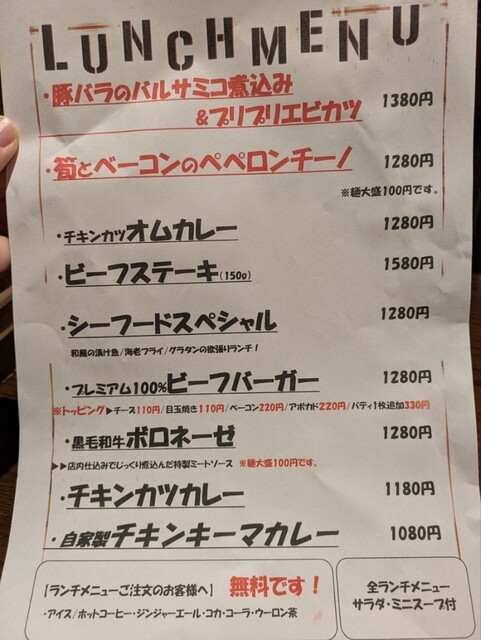 LUNCH MENU
・豚バラのバルサミコ煮込み
&プリプリエビカツ 1380円
・筍とベーコンのペペロンチーノ 1280円
※麺大盛100円です。
・チキンカツオムカレー 1280円
・ビーフステーキ(150g) 1580円
・シーフードスペシャル 1280円
和風の漬け魚/海老フライ/グラタンの欲張りランチ!
・プレミアム100%ビーフバーガー 1280円
※トッピング▶チーズ110円/目玉焼き110円/ベーコン220円/アボカド220円/パティ1枚追加330円
・黒毛和牛ボロネーゼ 1280円
▶▶店内仕込みでじっくり煮込んだ特製ミートソース ※麺大盛100円です。
・チキンカツカレー 1180円
・自家製チキンキーマカレー 1080円
【ランチメニューご注文のお客様へ】 無料です!
・アイス/ホットコーヒー・ジンジャーエール・コカ・コーラ・ウーロン茶
全ランチメニュー
サラダ・ミニスープ付